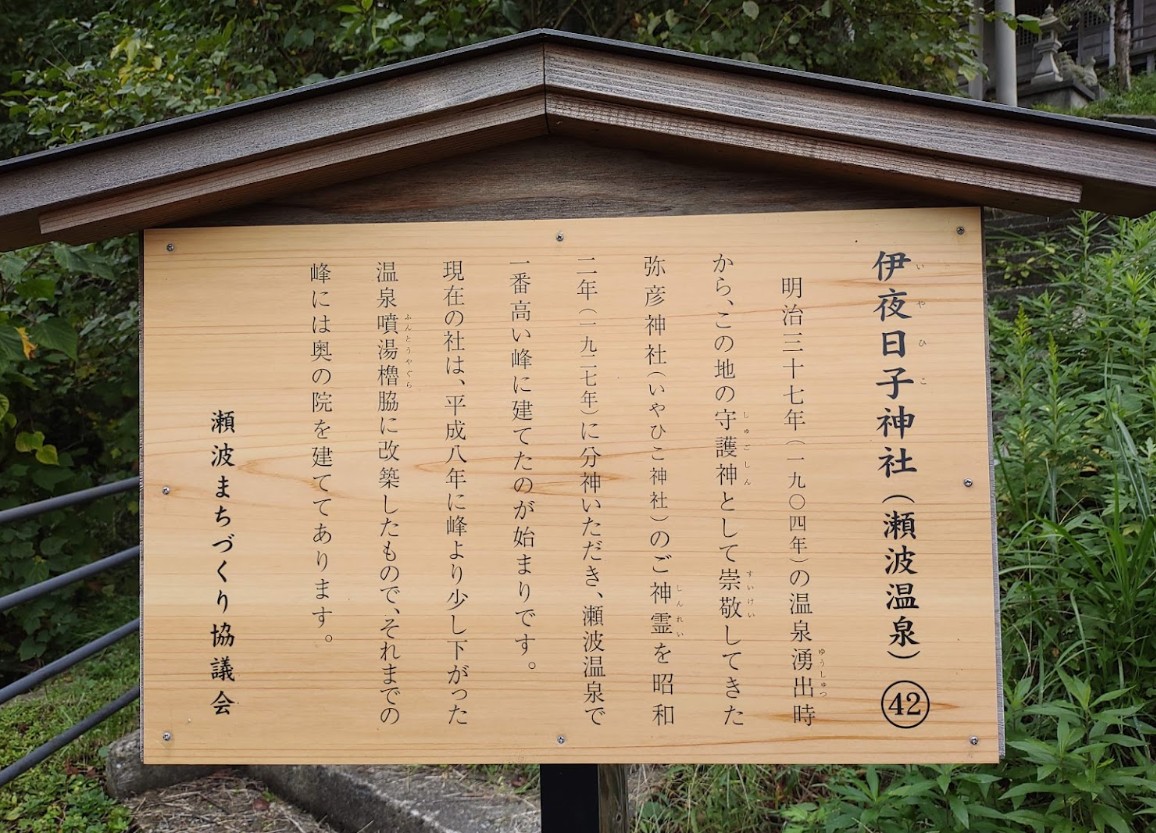 伊夜日子神社（瀬波温泉）㊷
いやひこ
明治三十七年（一九〇四年）の温泉湧出時
ゆうしゅつ
から、この地の守護神として崇敬してきた
しゅごしん
すいけい
弥彦神社（いやひこ神社）のご神霊を昭和
しんれい
二年（一九二七年）に分神いただき、瀬波温泉で
一番高い峰に建てたのが始まりです。
現在の社は、平成八年に峰より少し下がった
温泉噴湯櫓脇に改築したもので、それまでの
ふんとうやぐら
峰には奥の院を建ててあります。
瀬波まちづくり協議会